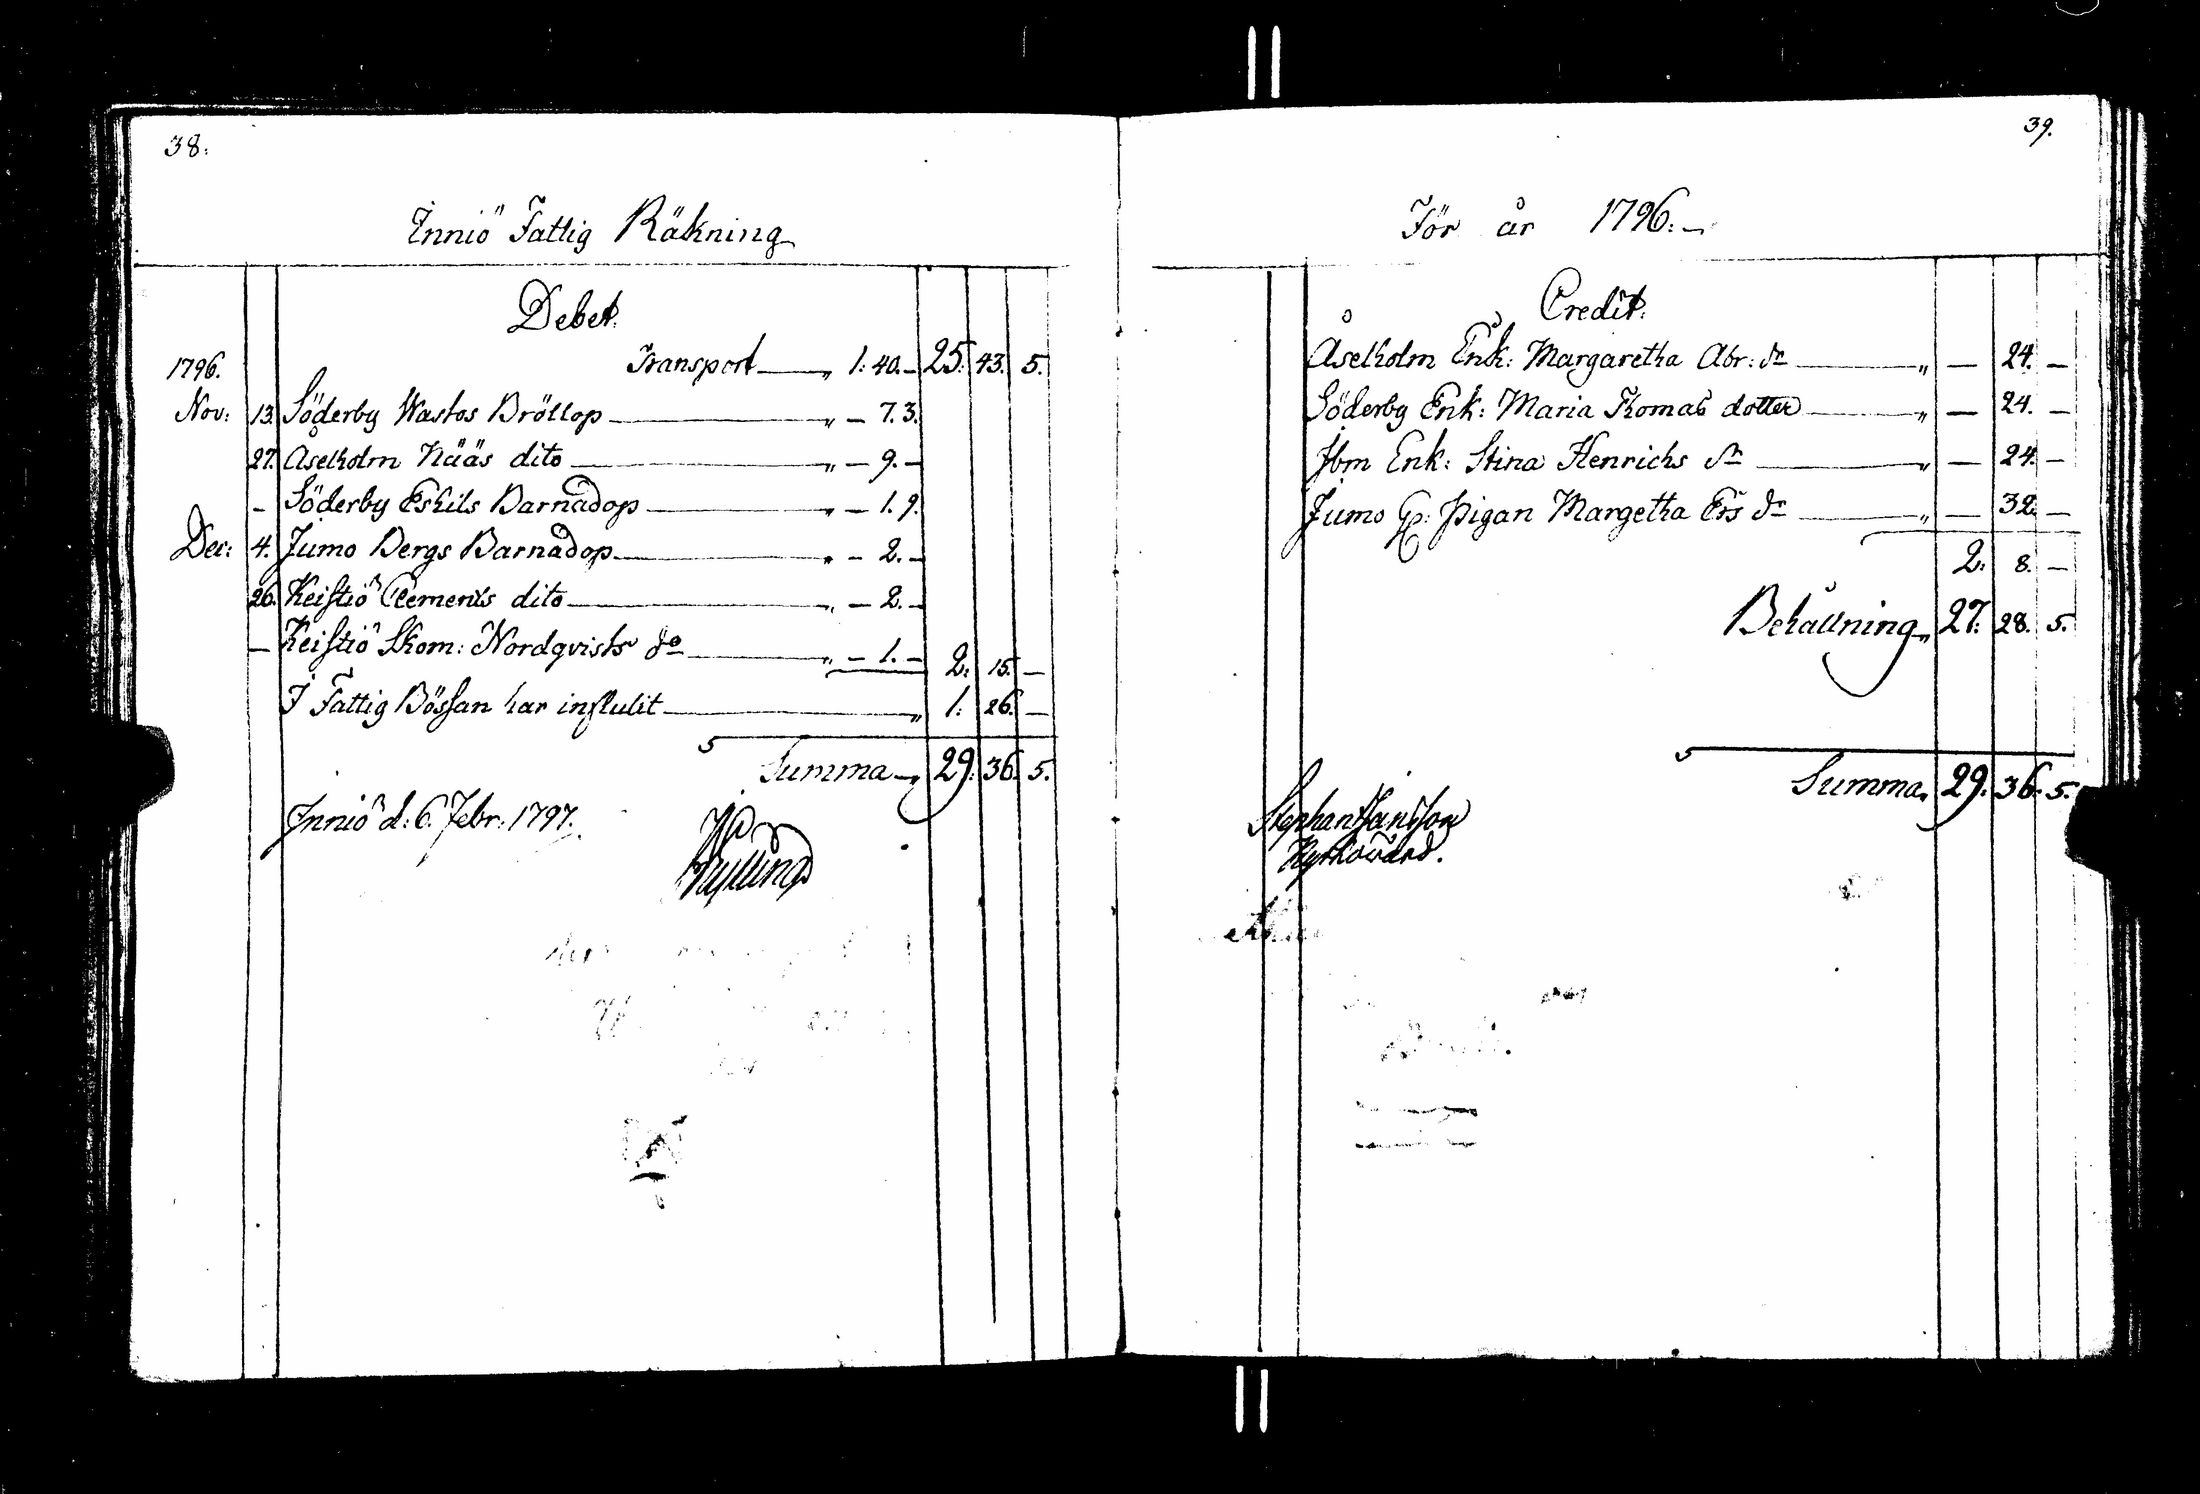 38.
Inniö Fattig Räkning
Debet.
1796. Transport — „ 1: 40. — 25. 43. 5.
Nov: 13. Söderby Wastos Bröllop — „ — 7. 3.
27. Åselholm Nääs dito — „ — 9. —
— Söderby Eskils Barnadop — „ — 1. 9.
Dec: 4. Jumo Bergs Barnadop — „ — 2. —
26. Keistiö Clements dito — „ — 2. —
— Keistiö Skom: Nordqvists do — „ — 1. — 2. 15. —
I Fattig Bössan har influlit — „ 1. 26. —
Summa — „ 29. 36. 5.
Inniö d: 6. Febr: 1797.
39.
För år 1796. —
Credit.
Åselholm Enk: Margaretha Abr: dr — „ — 24. —
Söderby Enk: Maria Thomas dotter — „ — 24. —
Ibm Enk: Stina Henrichs dr — „ — 24. —
Jumo pigan Margetha Ers dr — „ — 32. —
2. 8. —
Behållning „ 27. 28. 5.
Summa „ 29. 36. 5.
Stephan Hansson
Kyrkowärd.